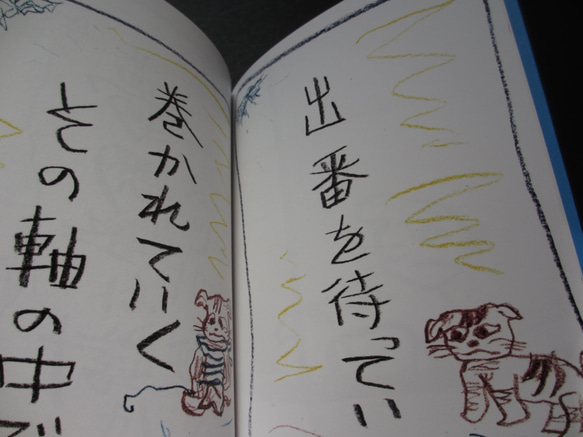 出番を待ってい
巻かれていく
その軸の中で